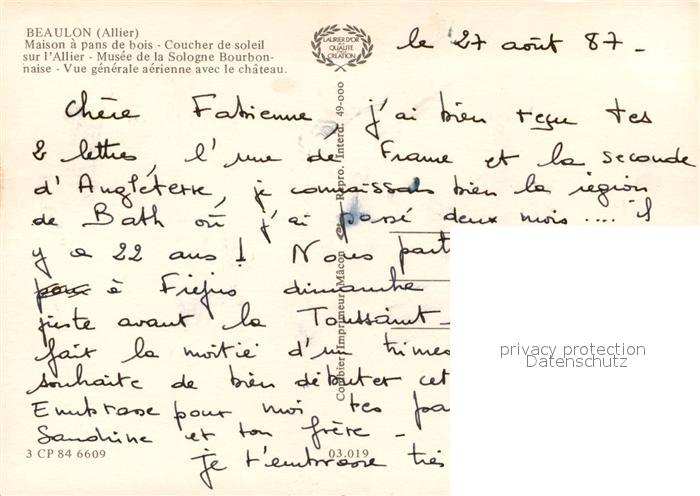 BEAULON (Allier)
Maison à pans de bois - Coucher de soleil
sur l'Allier - Musée de la Sologne Bourbon-
naise - Vue générale aérienne avec le château.
LAURIER D'OR
DE LA
QUALITÉ
CRÉATION
le 27 août 87 -
Chère Fabienne, j'ai bien reçu tes
2 lettres, l'une de France et la seconde
d'Angleterre, je connaissais bien la région
de Bath où j'ai passé deux mois .... il
y a 22 ans ! Nous part
à Fréjus dimanche
juste avant la Toussaint
fait la moitié d'un trimes
souhaite de bien débuter cet
Embrasse pour moi tes pa
Sandrine et ton frère -
je t'embrasse très
Combier Imprimeur Mâcon Repro. Interd. 49-000
privacy protection
Datenschutz
3 CP 84 6609
03.019